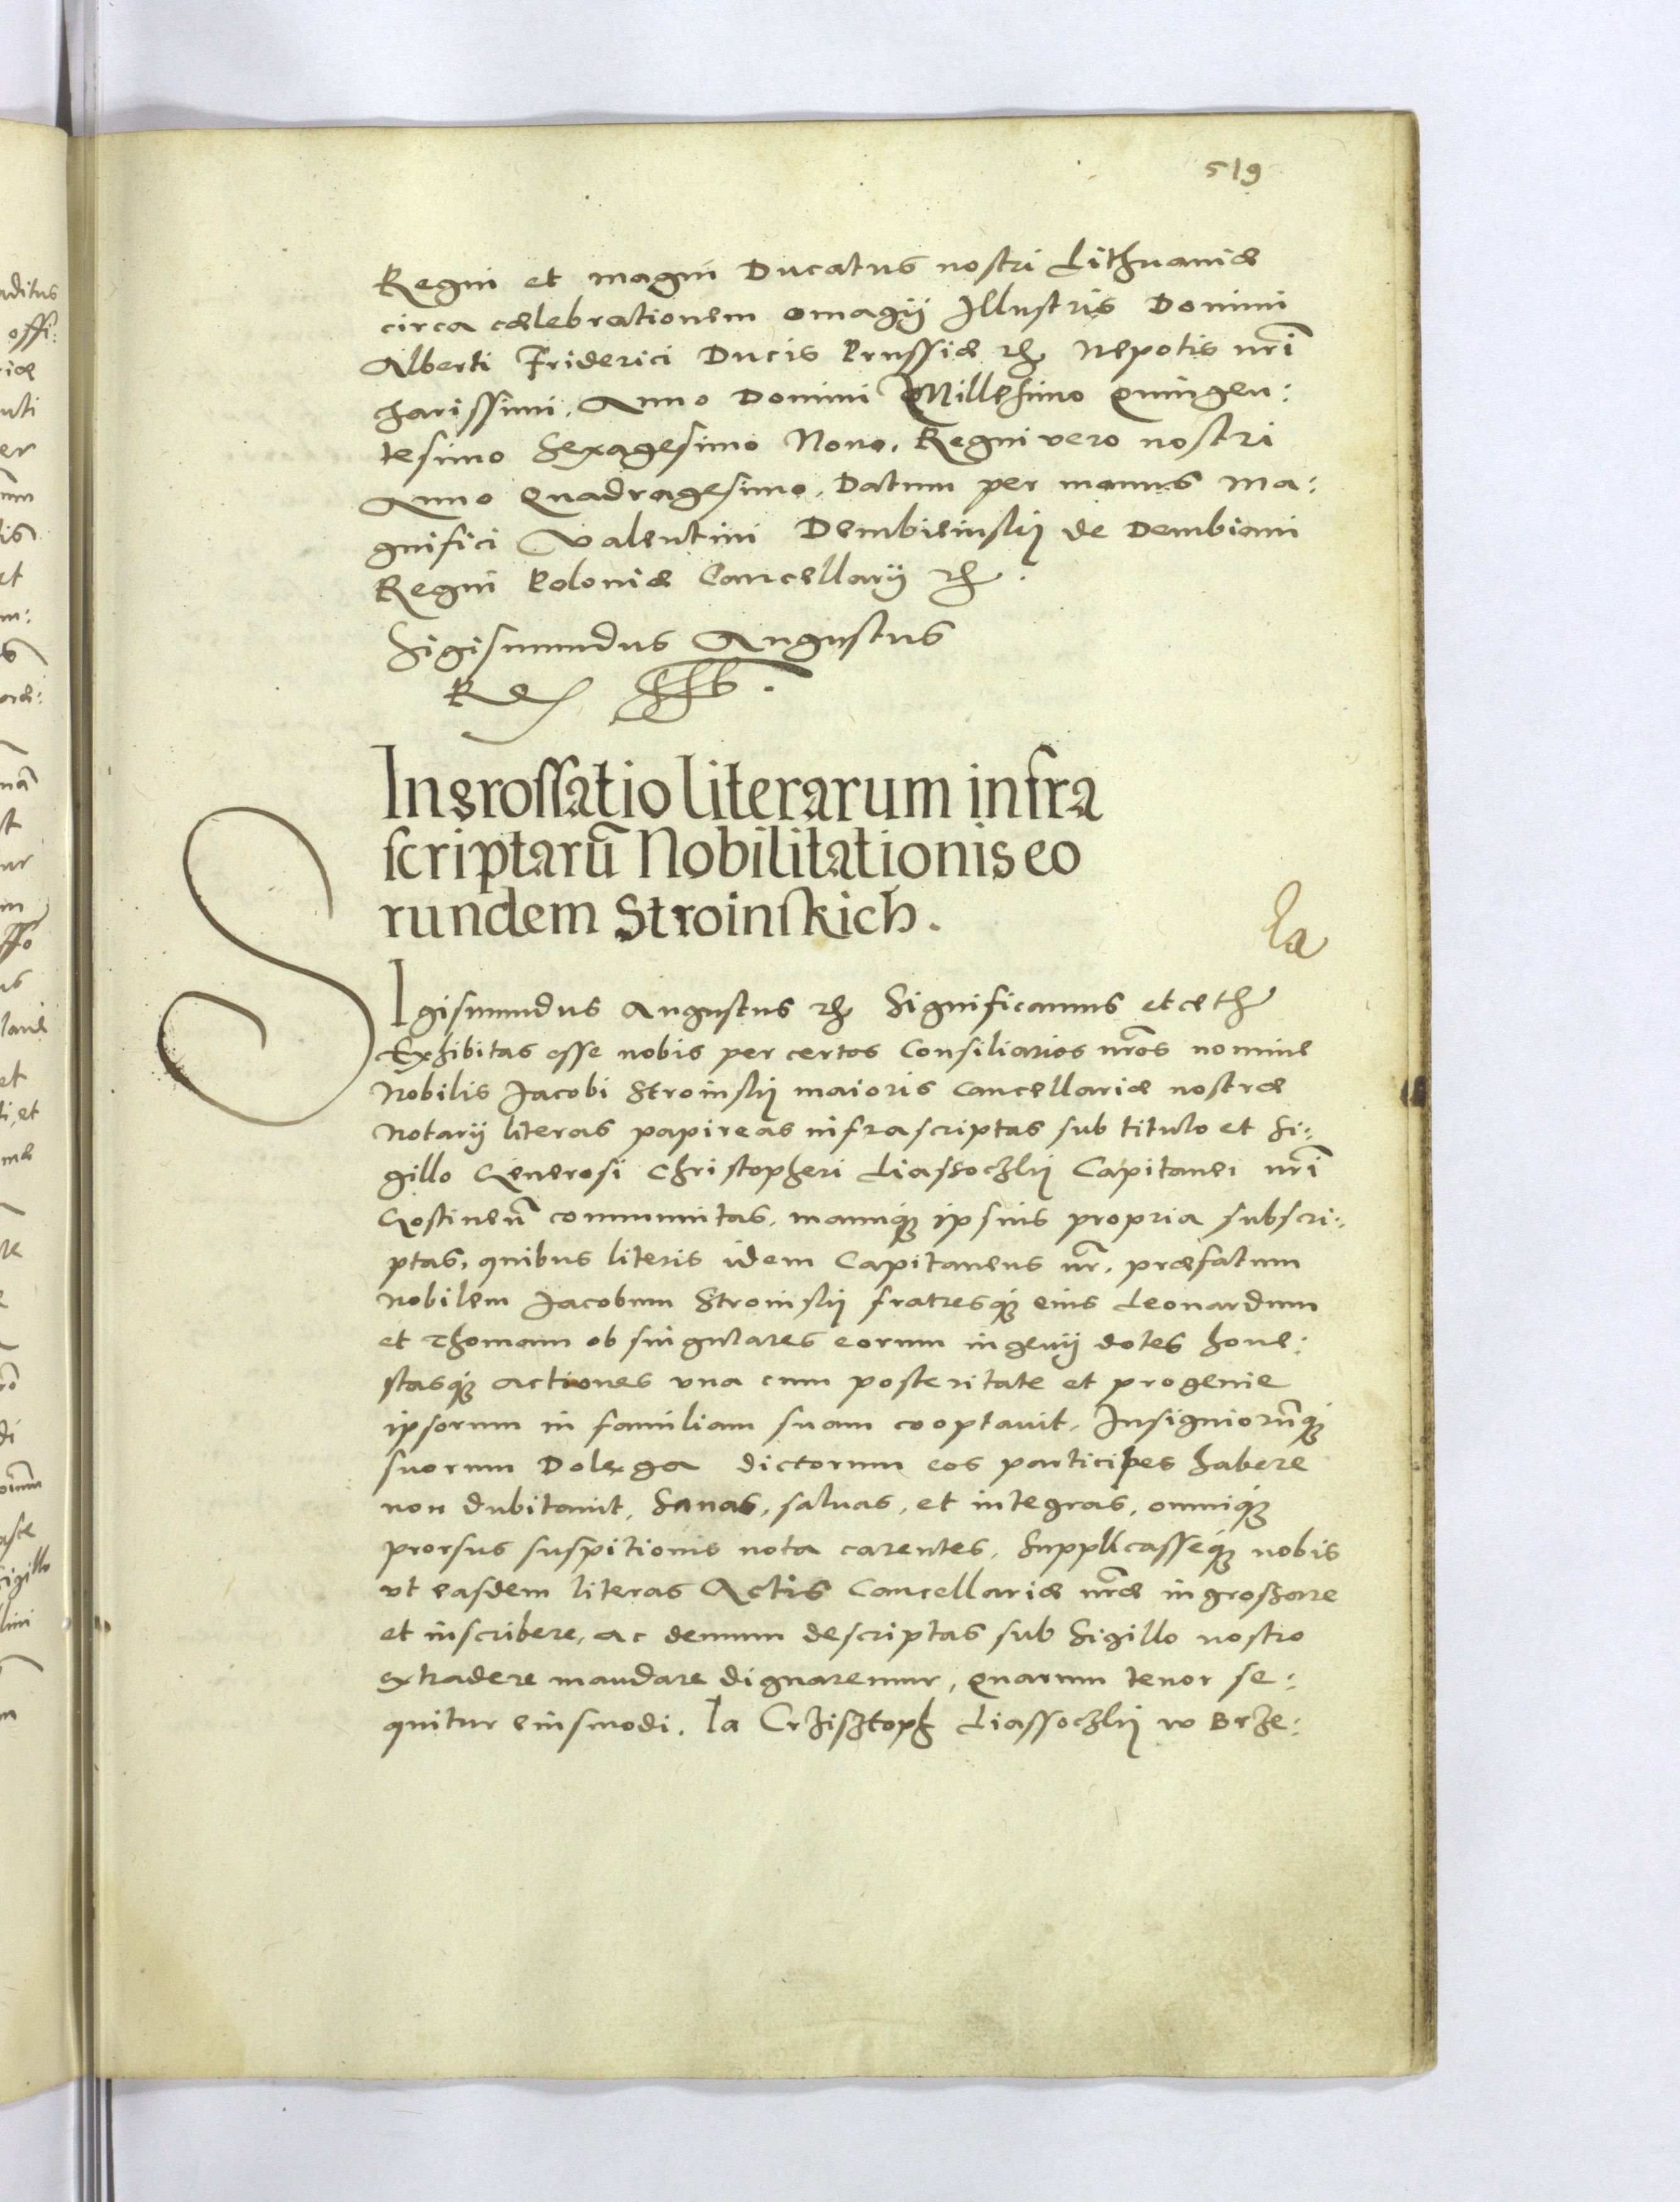 519
Regni et magni Ducatus nostri Lithuaniæ
circa cælebrationem omagij Illustris Domini
Alberti Friderici Ducis Prussiæ etc. Nepotis nr̃i
charissimi. Anno Domini Millesimo Quingen:
tesimo Sexagesimo Nono. Regni vero nostri
Anno Quadragesimo. Datum per manus Ma:
gnifici Valentini Dembieinskij de Dembiani
Regni Poloniæ Cancellarij etc.
Sigismundus Augustus
Rex
Ingrossatio literarum infra
scriptarũ Nobilitationis eo
rundem Stroinskich.
SIgismundus Augustus etc. Significamus et cæth
Exhibitas esse nobis per certos Consiliarios nr̃os nomine
Nobilis Jacobi Stroinskij maioris Cancellariæ nostræ
Notarij literas papireas infrascriptas sub titulo et Si:
gillo Generosi Christopheri Liassoczkij Capitanei nr̃i
Gostineñ communitas, manuq; ipsius propria subscri:
ptas, quibus literis idem Capitaneus nr̃, præfatum
Nobilem Jacobum Stroinskij fratresq; eius Leonardum
et Thomam ob singulares eorum ingenij dotes hone:
stasq; actiones vna cum posteritate et progenie
ipsorum in familiam suam cooptauit, Insigniorũq;
suorum Dolęga dictorum eos participes habere
non dubitauit, Sanas, saluas, et integras, omniq;
prorsus suspitionis nota carentes, Supplicasseq; nobis
vt easdem literas Actis Cancellariæ nr̃æ ingrossare
et inscribere, ac demum descriptas sub Sigillo nostro
extradere mandare dignaremur, quarum tenor se:
quitur eiusmodi. Ia Crzisztoph Liassoczkij w Brze: